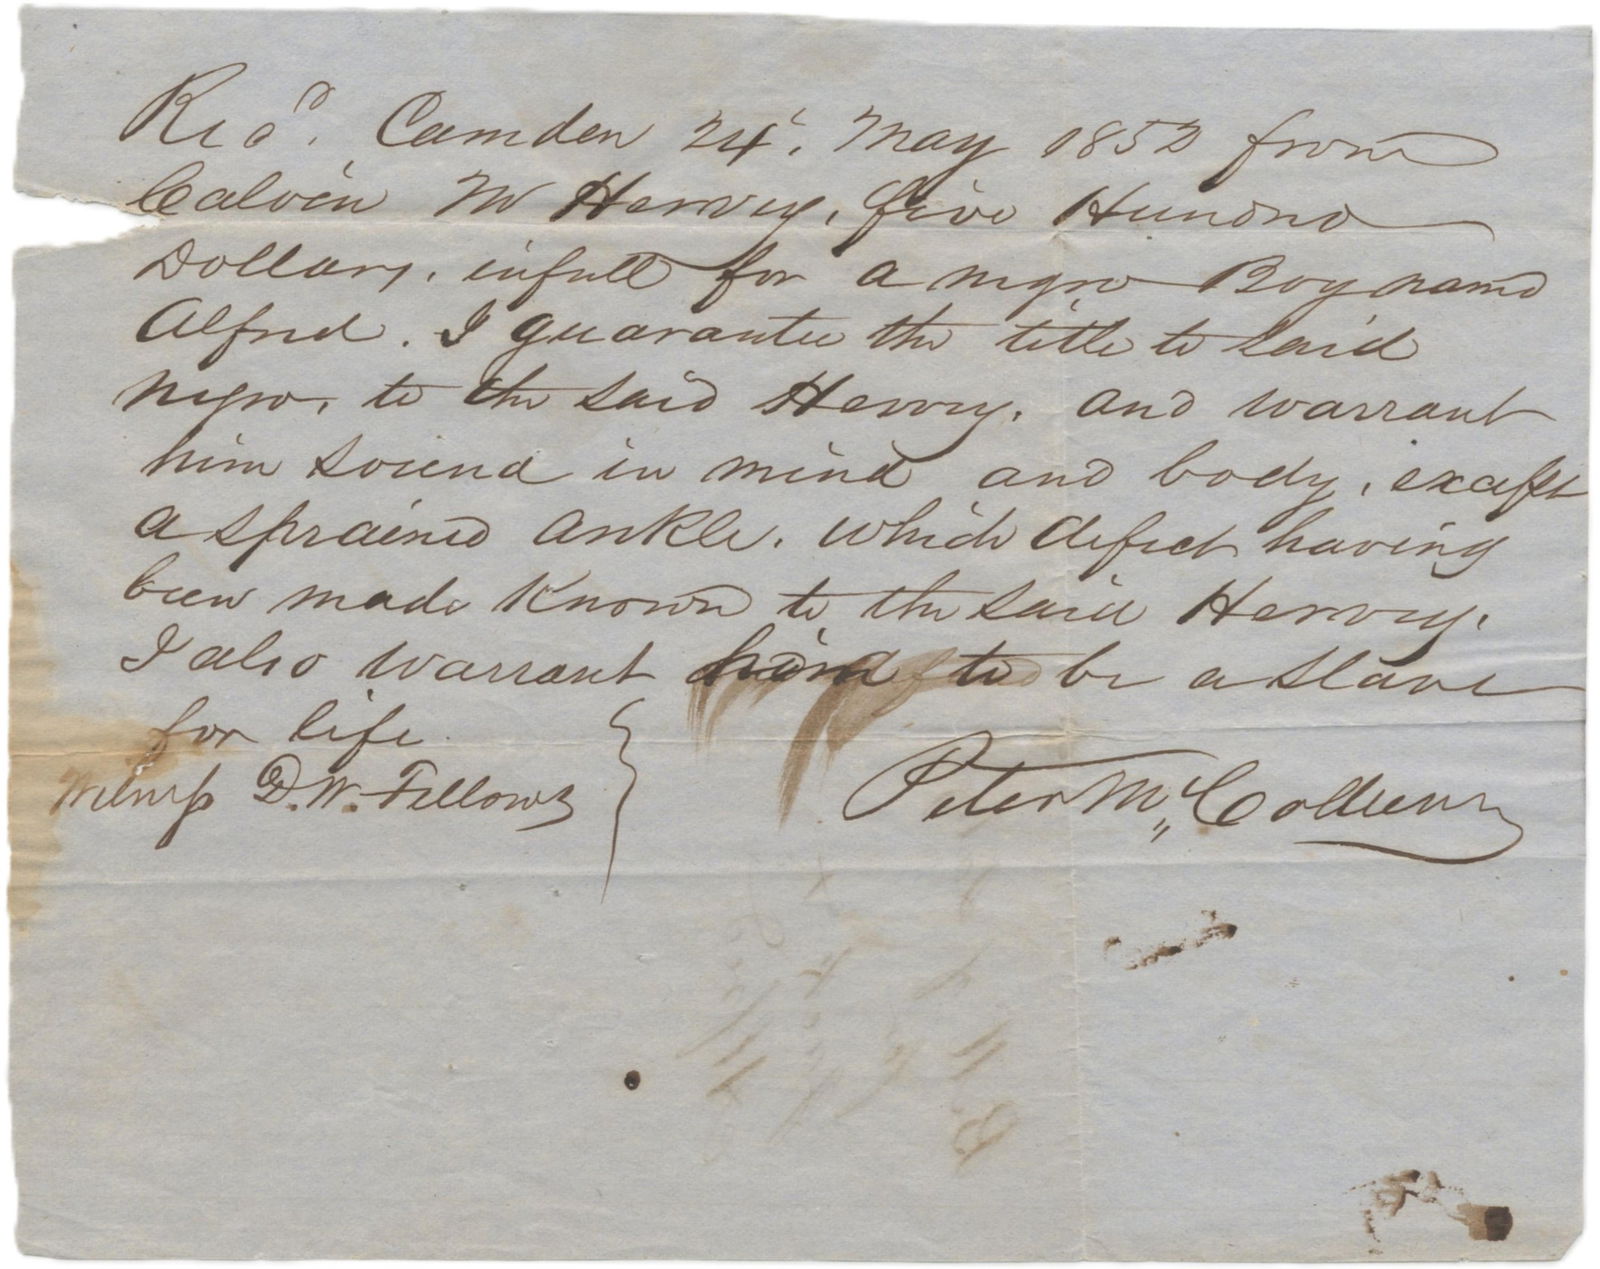 Recd. Camden 24. May 1852 from
Calvin M Hervey, five Hundred
Dollars, in full for a negro Boy named
Alfred. I guarantee the title to said
negro, to the said Hervey, and warrant
him sound in mind and body, except
a sprained ankle, which defect having
been made known to the said Hervey.
I also warrant him to be a slave
for life.
Witness D. W. Fellows
Peter McCollum